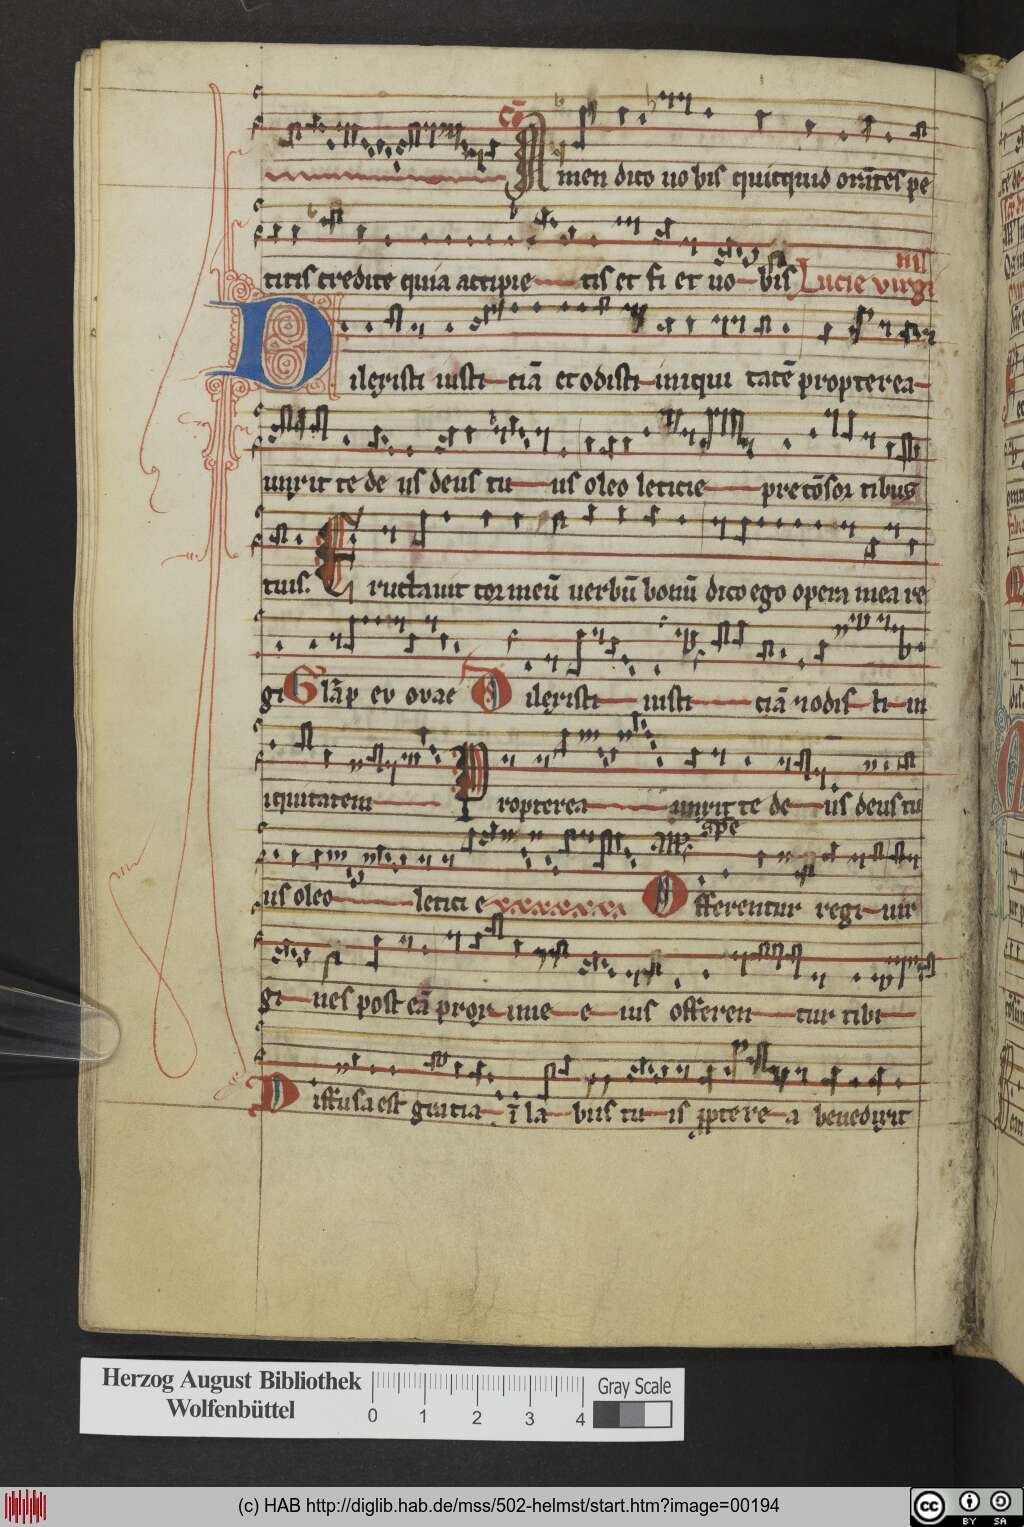 Cō
Amen dico uobis quicquid orātes pe
titis credite quia accipie tis et fi et uo bis Lucie virgi
nis
Dilexisti iusti ciā et odisti iniqui tatē propterea
unxit te de us deus tu us oleo leticie pre cōsor tibus
tuis. Eructauit cor meū uerbū bonū dico ego opera mea re
gi Gl̄a p eu ouae Dilexisti iusti ciā ⁊ odis ti in
iquitatem Propterea unxit te de us deus tu
us oleo letici e Off̄erentur regi uir
gi nes post eā prox ime e ius offeren tur tibi
Diffusa est gracia ī la biis tu is ꝓpte re a benedixit
Herzog August Bibliothek
Wolfenbüttel
0 1 2 3 4
Gray Scale
(c) HAB http://diglib.hab.de/mss/502-helmst/start.htm?image=00194
cc BY SA